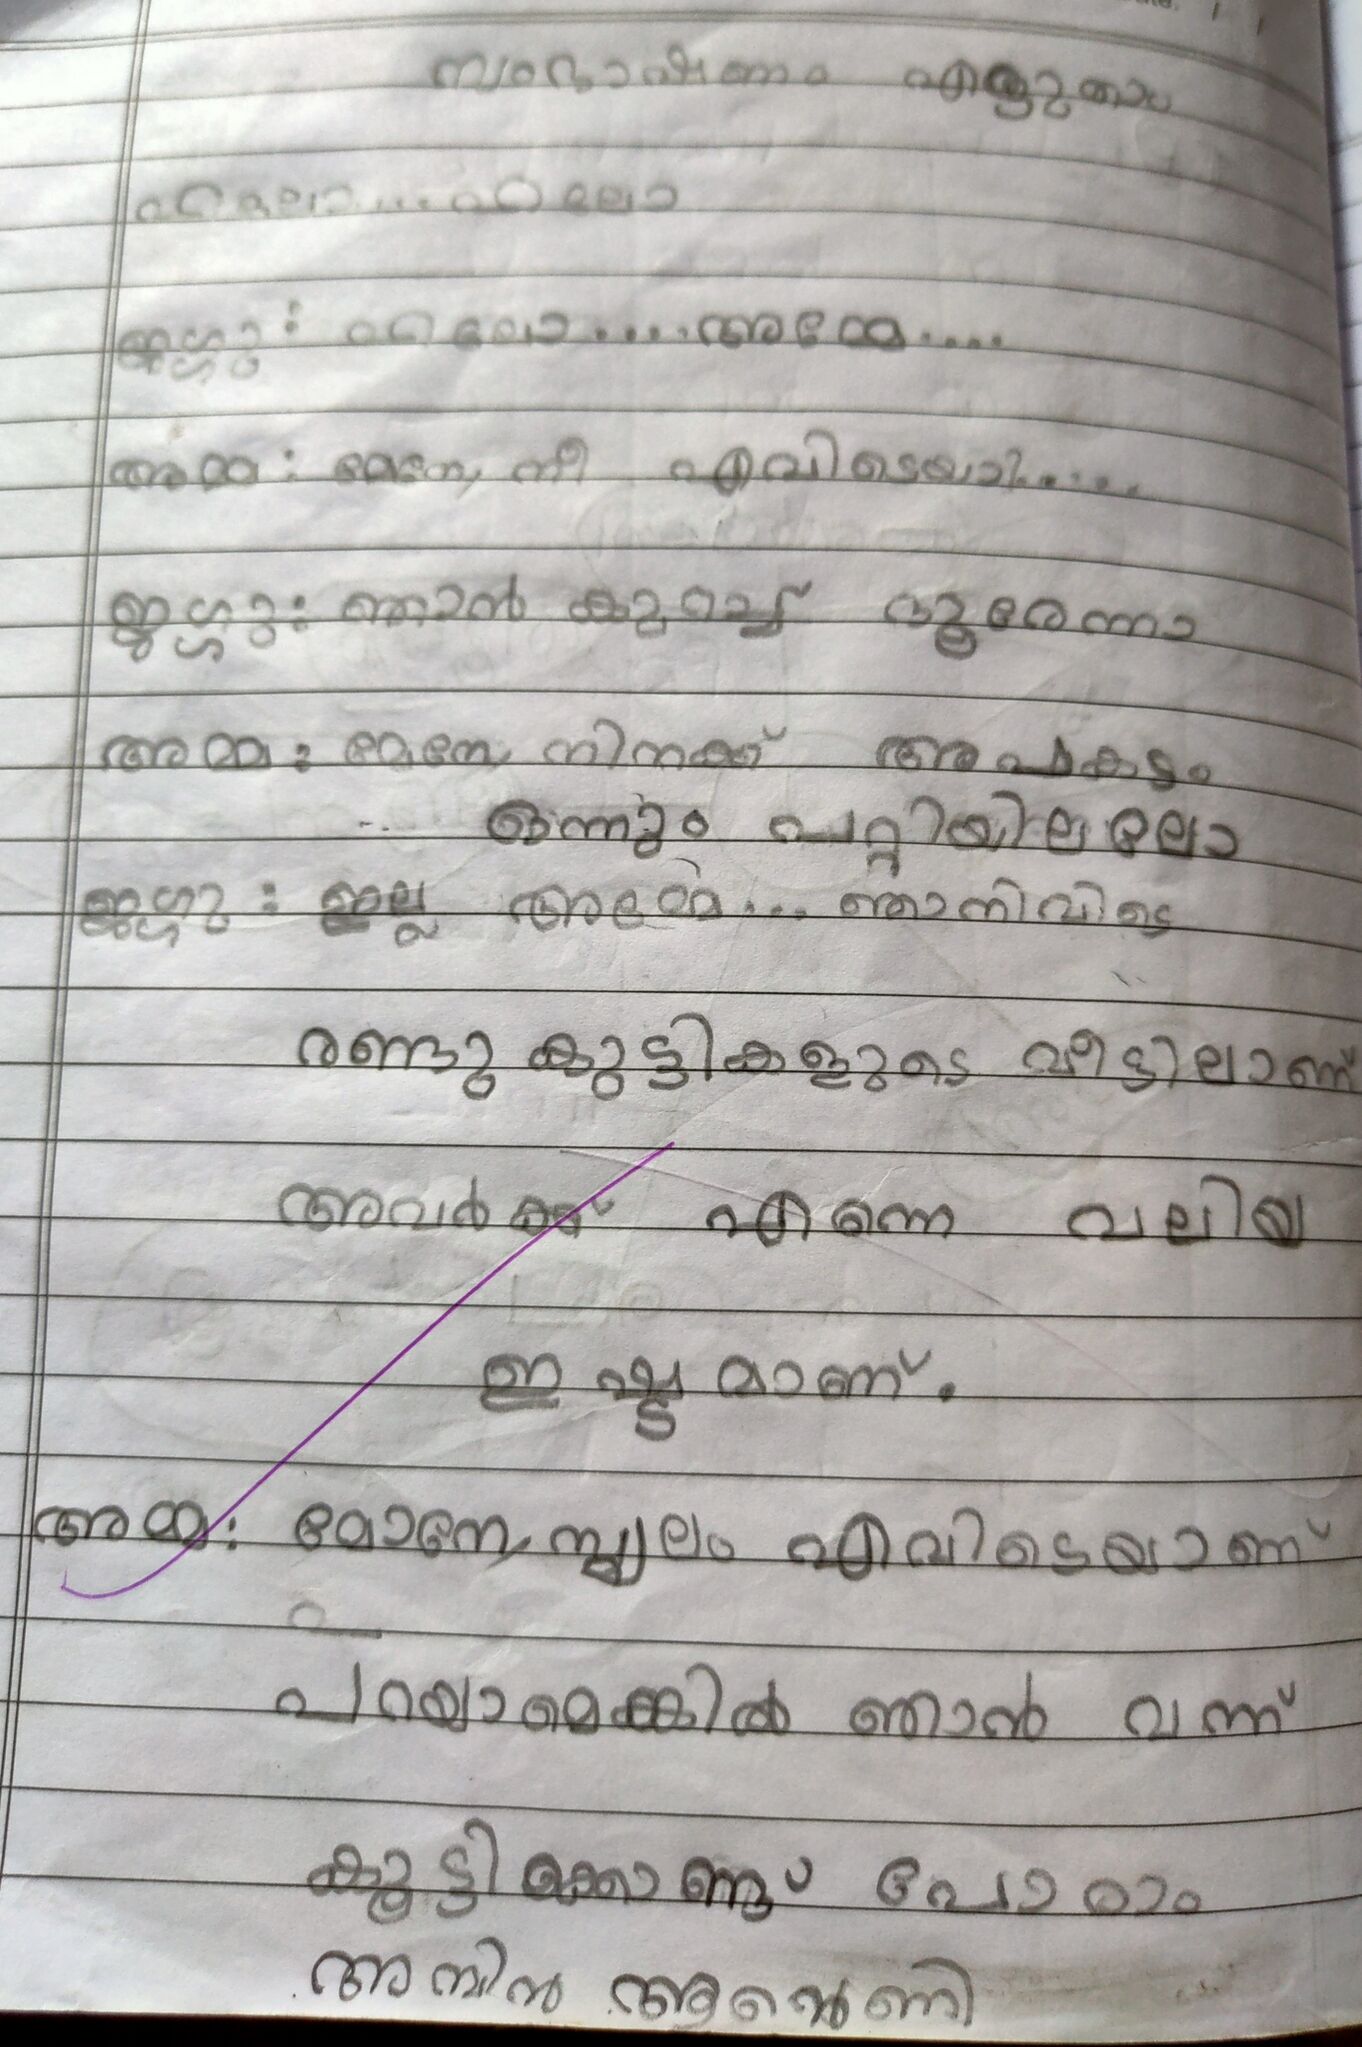 സംഭാഷണം എഴുതാം
ഹലോ....ഹലോ
ജഗ്ഗു: ഹലോ.....അമ്മേ....
അമ്മ: മോനേ, നീ എവിടെയാ.....
ജഗ്ഗു: ഞാൻ കുറച്ച് ദൂരേന്നാ
അമ്മ: മോനേ, നിനക്ക് അപകടം
ഒന്നും പറ്റിയില്ലല്ലോ
ജഗ്ഗു: ഇല്ല അമ്മേ... ഞാനിവിടെ
രണ്ടു കുട്ടികളുടെ വീട്ടിലാണ്
അവർക്ക് എന്നെ വലിയ
ഇഷ്ടമാണ്.
അമ്മ: മോനേ, സ്ഥലം എവിടെയാണ്
പറയാമെങ്കിൽ ഞാൻ വന്ന്
കൂട്ടിക്കൊണ്ടു പോരാം